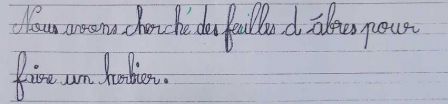 Nous avons cherché des feuilles d'âbres pour
faire un herbier.